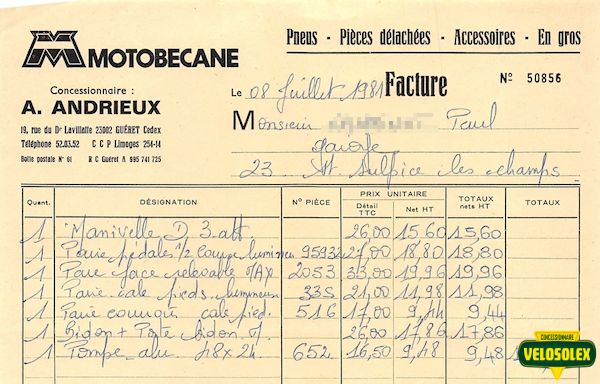 MOTOBECANE
Pneus - Pièces détachées - Accessoires - En gros
Concessionnaire :
A. ANDRIEUX
19, rue du Dr Lavillatte 23002 GUÉRET Cedex
Téléphone 52.03.52 C C P Limoges 254-14
Boite postale N° 61 R C Guéret A 995 741 725
Le 08 Juillet 1981 Facture N° 50856
Monsieur Paul
23 St. Sulpice les champs
Quant. DÉSIGNATION N° PIÈCE PRIX UNITAIRE Détail TTC Net HT TOTAUX nets HT TOTAUX
1 Manivelle D 3 att. 26,00 15,60 15,60
1 Paire pédales 1/2 course lumineu 18,80 18,80
1 Paire face relevable MAX 2053 33,00 19,96 19,96
1 Paire cale pieds lumineux 335 21,00 11,98 11,98
1 Paire courroies cale pied. 516 17,00 9,44 9,44
1 Bidon + Porte bidon 26,00 17,86 17,86
1 Pompe alu 48x24 652 16,50 9,48 9,48
CONCESSIONNAIRE
VELOSOLEX